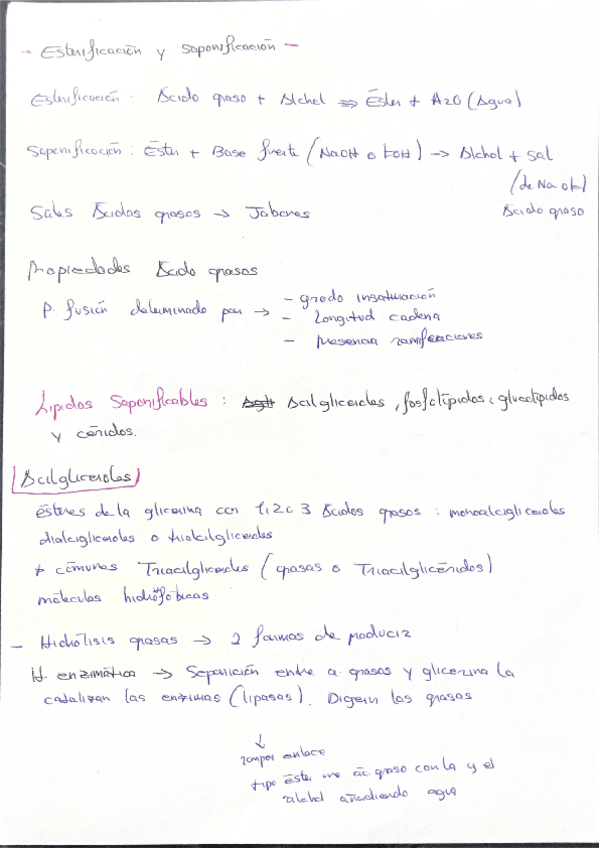 - Esterificación y saponificación -
Esterificación: Ácido graso + Alchol ⇌ Éster + H2O (Agua)
Saponificación: Éster + Base fuerte (NaOH o KOH) → Alchol + sal
(de Na o K)
Sales Ácidos grasos → Jabones
Ácido graso
Propiedades Ácido grasos
P. fusión determinado por → - grado insaturación
- Longitud cadena
- Presencia ramificaciones
Lípidos Saponificables: Acilgliceroles, fosfolípidos, glucolípidos
y céridos.
Acilgliceroles
ésteres de la glicerina con 1, 2 o 3 Ácidos grasos: monoacilgliceroles
diacilgliceroles o triacilgliceroles
+ comunes Triacilgliceroles (grasas o Triacilglicéridos)
moléculas hidrofóbicas
- Hidrólisis grasas → 2 formas de producir
H. enzimática → Separición entre a. grasos y glicerina la
catalizan las enzimas (lipasas). Digerir las grasas
↓
romper enlace
tipo éster une ác graso con la y el
alcohol añadiendo agua